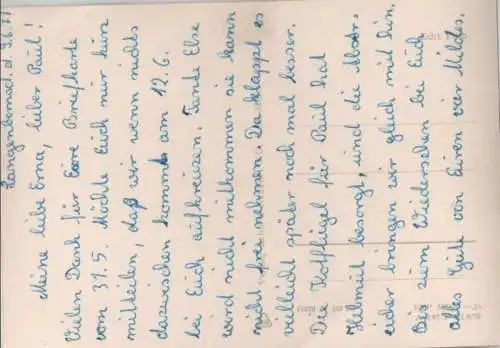 Langenbernsd. d. 5.6.77
Meine liebe Erna, lieber Paul!
Vielen Dank für Eure Briefkarte
vom 31.5. Möchte Euch nur kurz
mitteilen, daß wir wenn nichts
dazwischen kommt am 12.6.
bei Euch aufkreuzen. Tante Else
wird nicht mitkommen sie kann
nicht frei nehmen. Da klappt es
vielleicht später noch mal besser.
Die Kotflügel für Paul hat
Helmut besorgt, und die
bringen wir gleich mit hin.
Bis zum Wiedersehen bei Euch
alles Gute von Euren vier
Echt Foto